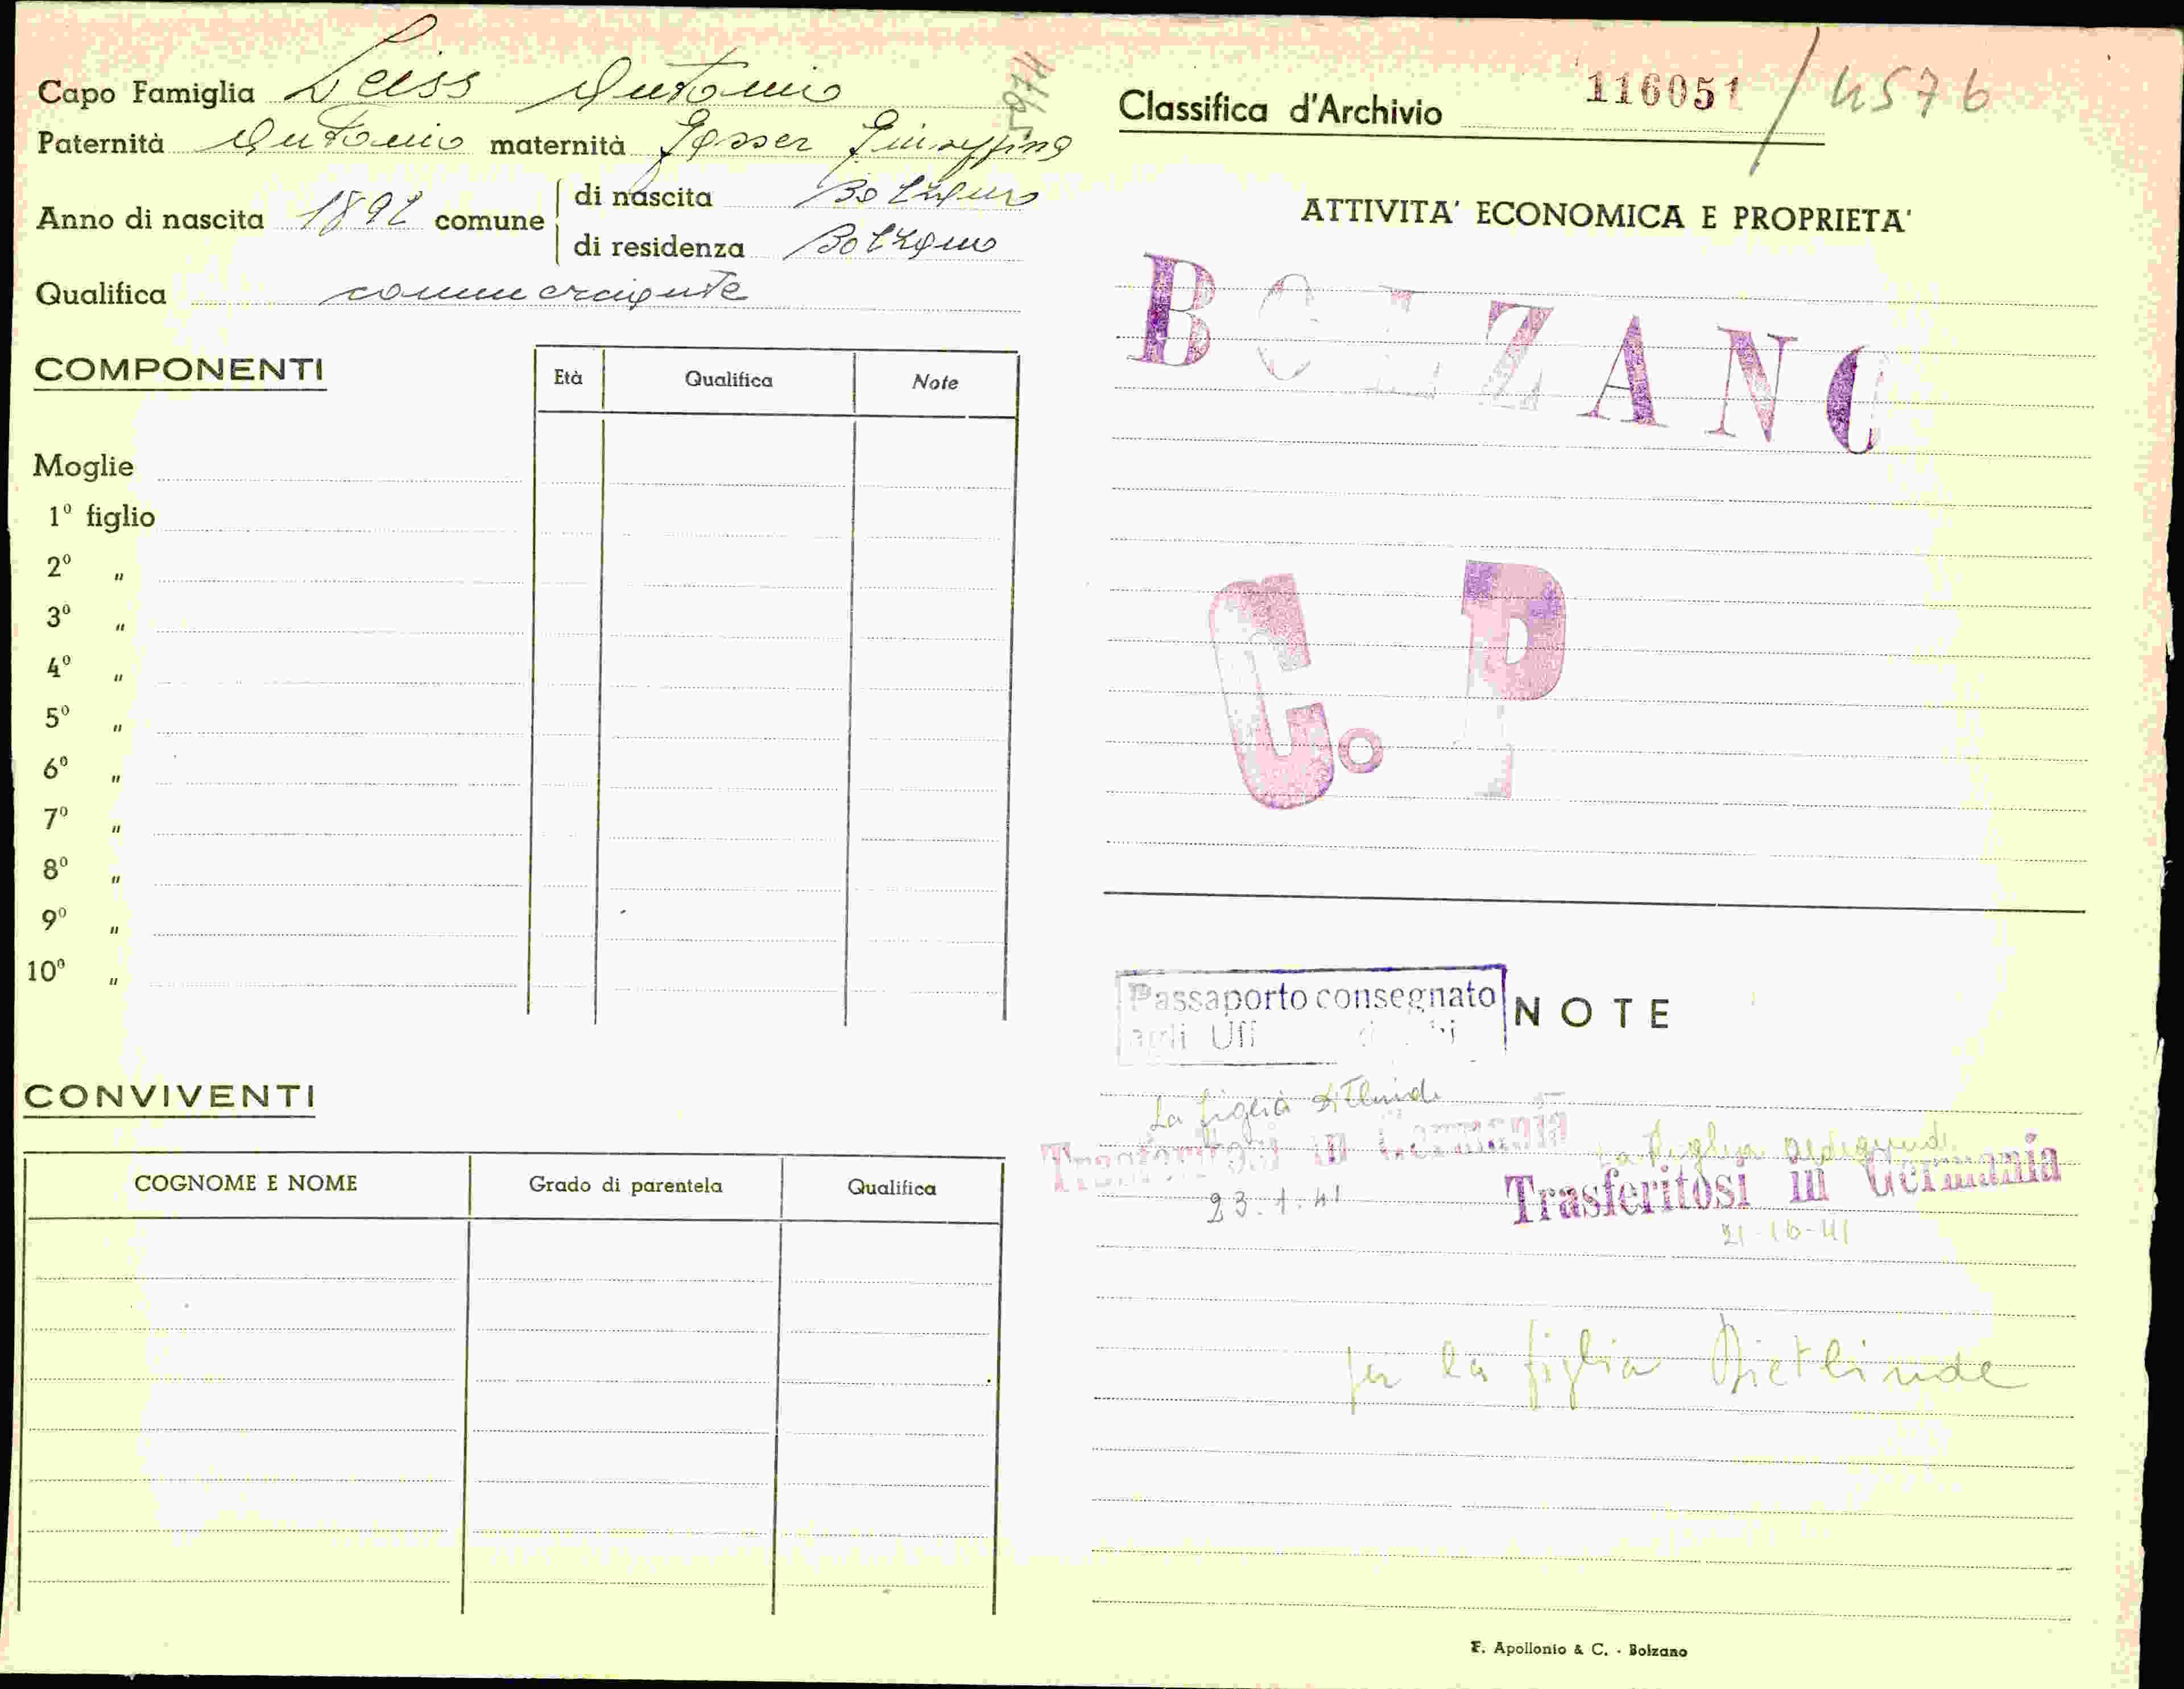 Capo Famiglia Leiss Antonio
Paternità Antonio maternità Gasser Giuseppina
Anno di nascita 1892 comune di nascita Bolzano
di residenza Bolzano
Qualifica commerciante
COMPONENTI
Età Qualifica Note
Moglie
1º figlio
2º "
3º "
4º "
5º "
6º "
7º "
8º "
9º "
10º "
CONVIVENTI
COGNOME E NOME Grado di parentela Qualifica
5974
Classifica d'Archivio 116051 / 4576
ATTIVITA' ECONOMICA E PROPRIETA'
BOLZANO
C. P
Passaporto consegnato
agli
NOTE
La figlia
Trasferitosi in Germania
23.1.41
La figlia
Trasferitosi in Germania
21-10-41
per la figlia Dietlinde
F. Apollonio & C. - Bolzano